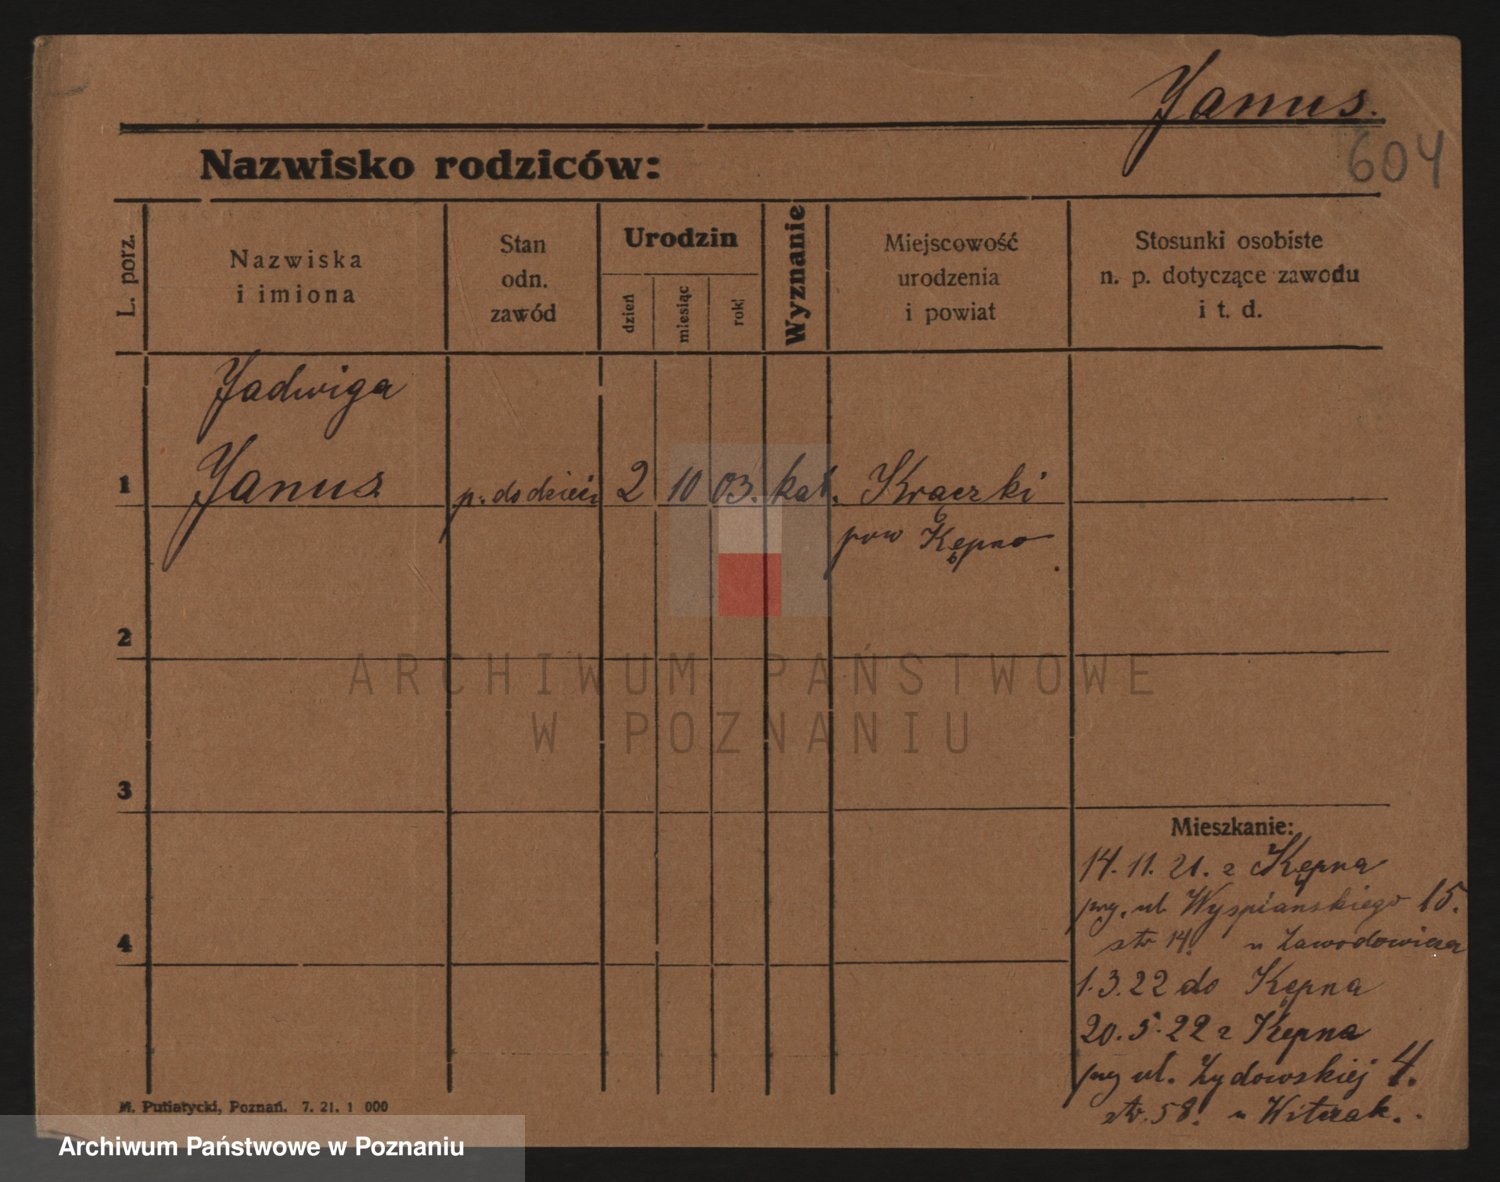 Janus.
604
Nazwisko rodziców:
L. porz.
Nazwiska
i imiona
Stan
odn.
zawód
Urodzin
dzień
miesiąc
rok
Wyznanie
Miejscowość
urodzenia
i powiat
Stosunki osobiste
n. p. dotyczące zawodu
i t. d.
Jadwiga
1 Janus p. do dzieci 2 10 03. kat. Krączki
pow Kępno
2
3
4
ARCHIWUM PAŃSTWOWE
W POZNANIU
Mieszkanie:
14. 11. 21. z Kępna
przy. ul Wyspianskiego 15.
str 14. u Zawodowicza
1. 3. 22 do Kępna
20. 5. 22 z Kępna
przy ul. Zydowskiej 4.
str. 58. u Witczak.
M. Putiatycki, Poznań. 7. 21. 1 000
Archiwum Państwowe w Poznaniu